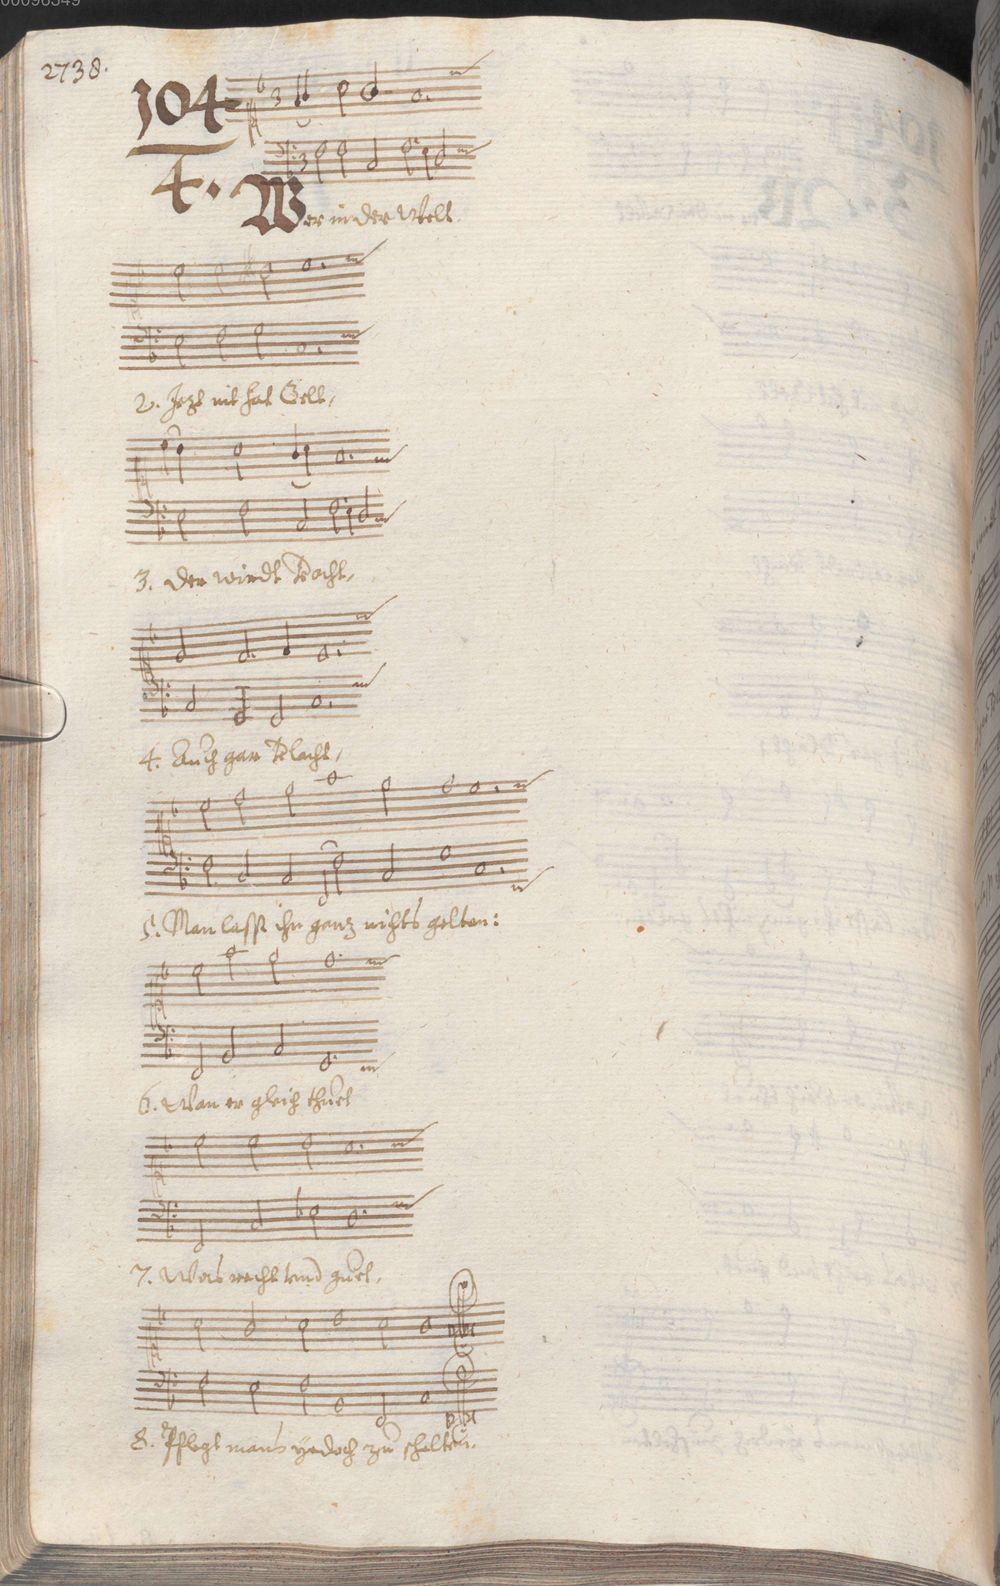 2738.
104.
4.
Wer in der Welt
2. Jezt nit hat Gelt,
3. Der wirdt
4. Auch gar
5. Man lasst ihn ganz nichts gelten:
6. Wan er gleich thuet
7. Was recht und guet,
8. Pflegt mans yedoch zu schelten.